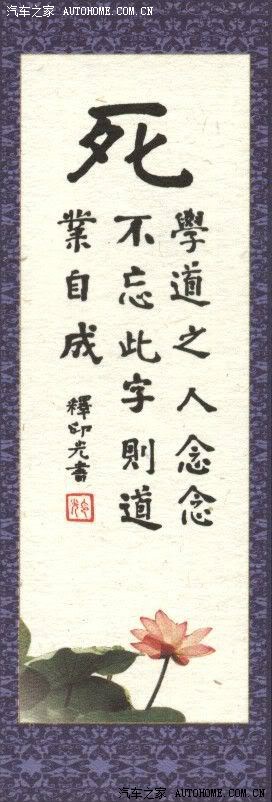 汽车之家 AUTOHOME.COM.CN
死
學道之人念念
不忘此字則道
業自成
釋印光書
汽车之家 AUTOHOME.COM.CN